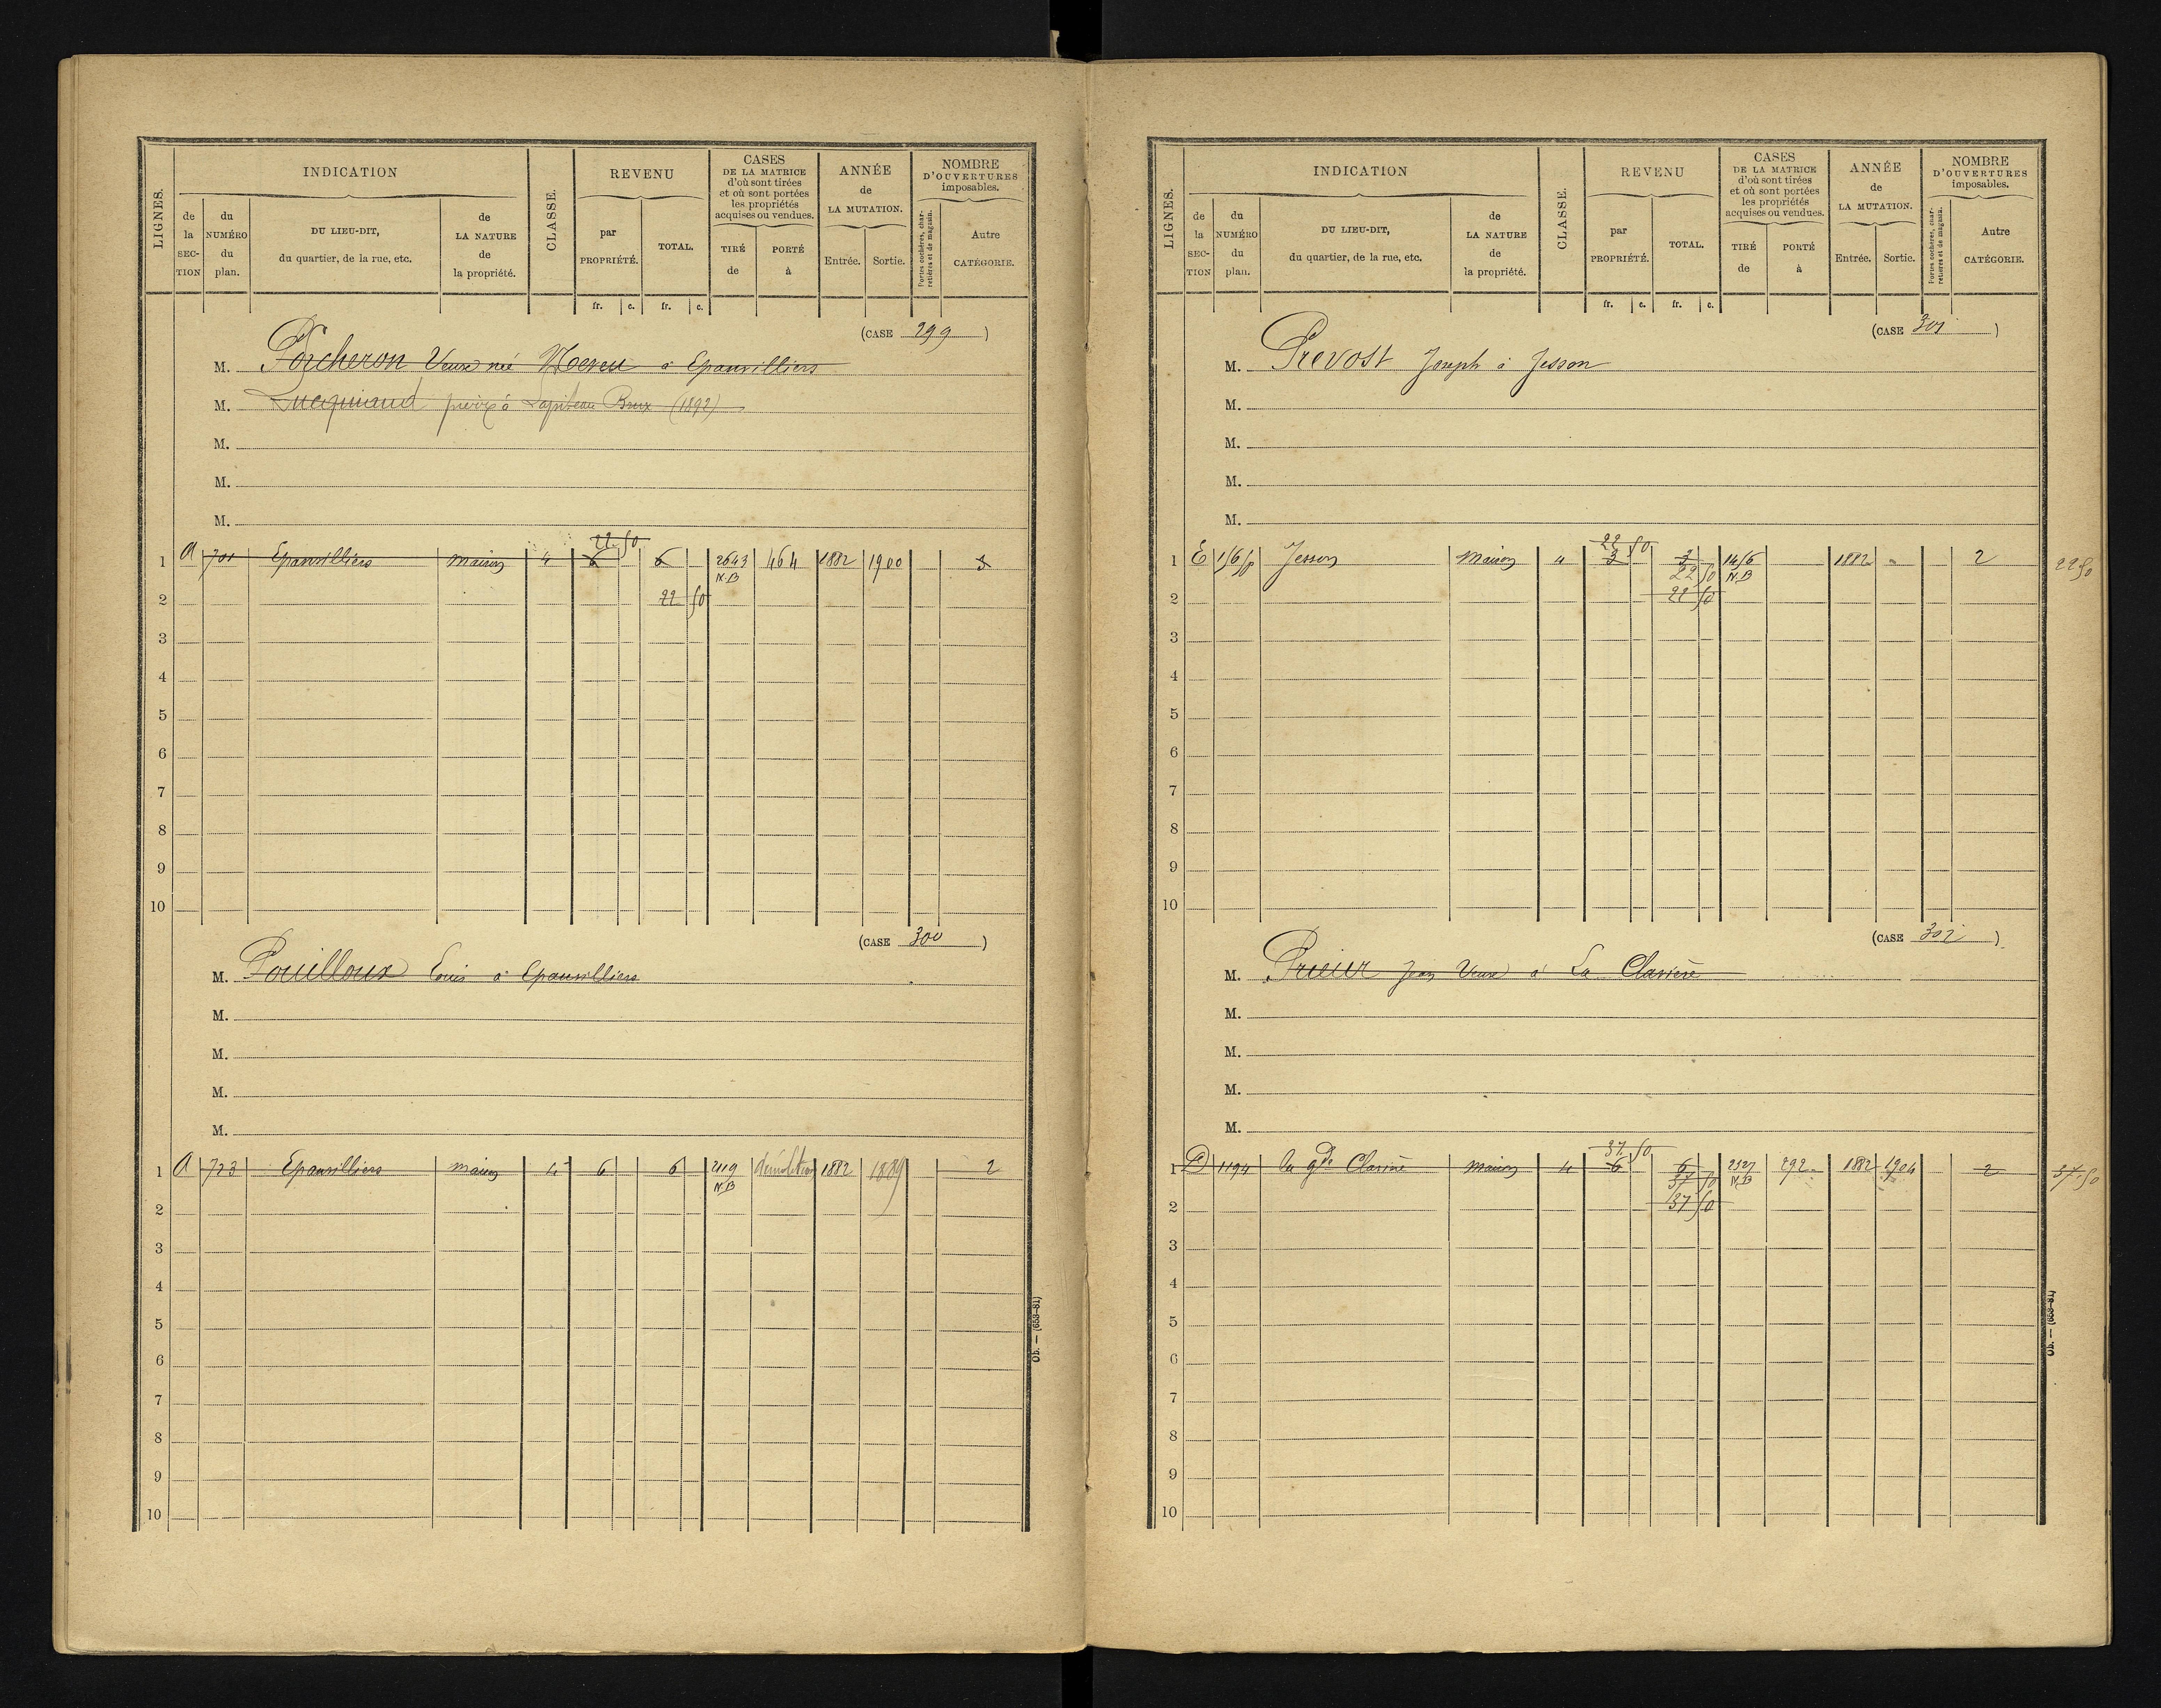 LIGNES.
INDICATION
CLASSE.
REVENU
CASES
DE LA MATRICE
d'où sont tirées
et où sont portées
les propriétés
acquises ou vendues.
ANNÉE
de
LA MUTATION.
NOMBRE
D'OUVERTURES
imposables.
de la SECTION
du NUMÉRO du plan.
DU LIEU-DIT,
du quartier, de la rue, etc.
de LA NATURE de la propriété.
par PROPRIÉTÉ.
TOTAL.
TIRÉ de
PORTÉ à
Entrée.
Sortie.
Portes cochères, charretières et de magasin.
Autre CATÉGORIE.
fr. c. fr. c.
(CASE 299)
M. Porcheron Veuve née à Epanvilliers
M. à Brux (1892)
M.
M.
M.
22 50
1 A 701 Epanvilliers maison 4 6 6 2643 464 1882 1900 3
N.B
2 22 50
3
4
5
6
7
8
9
10
(CASE 300)
M. Pouilloux Louis à Epanvilliers
M.
M.
M.
M.
1 A 723 Epanvilliers maison 4 6 6 2119 démolition 1882 1889 2
N.B
2
3
4
5
6
7
8
9
10
Ob. — (653-81)
LIGNES.
INDICATION
CLASSE.
REVENU
CASES
DE LA MATRICE
d'où sont tirées
et où sont portées
les propriétés
acquises ou vendues.
ANNÉE
de
LA MUTATION.
NOMBRE
D'OUVERTURES
imposables.
de la SECTION
du NUMÉRO du plan.
DU LIEU-DIT,
du quartier, de la rue, etc.
de LA NATURE de la propriété.
par PROPRIÉTÉ.
TOTAL.
TIRÉ de
PORTÉ à
Entrée.
Sortie.
Portes cochères, charretières et de magasin.
Autre CATÉGORIE.
fr. c. fr. c.
(CASE 301)
M. Prevost Joseph à Jesson
M.
M.
M.
M.
22 50
1 E 156p Jesson Maison 4 3 3 1456 1882 2 22 50
22 50 N.B
2 22 50
3
4
5
6
7
8
9
10
(CASE 302)
M. Jean Veuve à La Clavière
M.
M.
M.
M.
37 50
1 D 1194 la gde Clavière maison 4 6 6 2327 292 1882 1904 2 37.50
37 50 N.B
2 37 50
3
4
5
6
7
8
9
10
Ob. — (653-81)